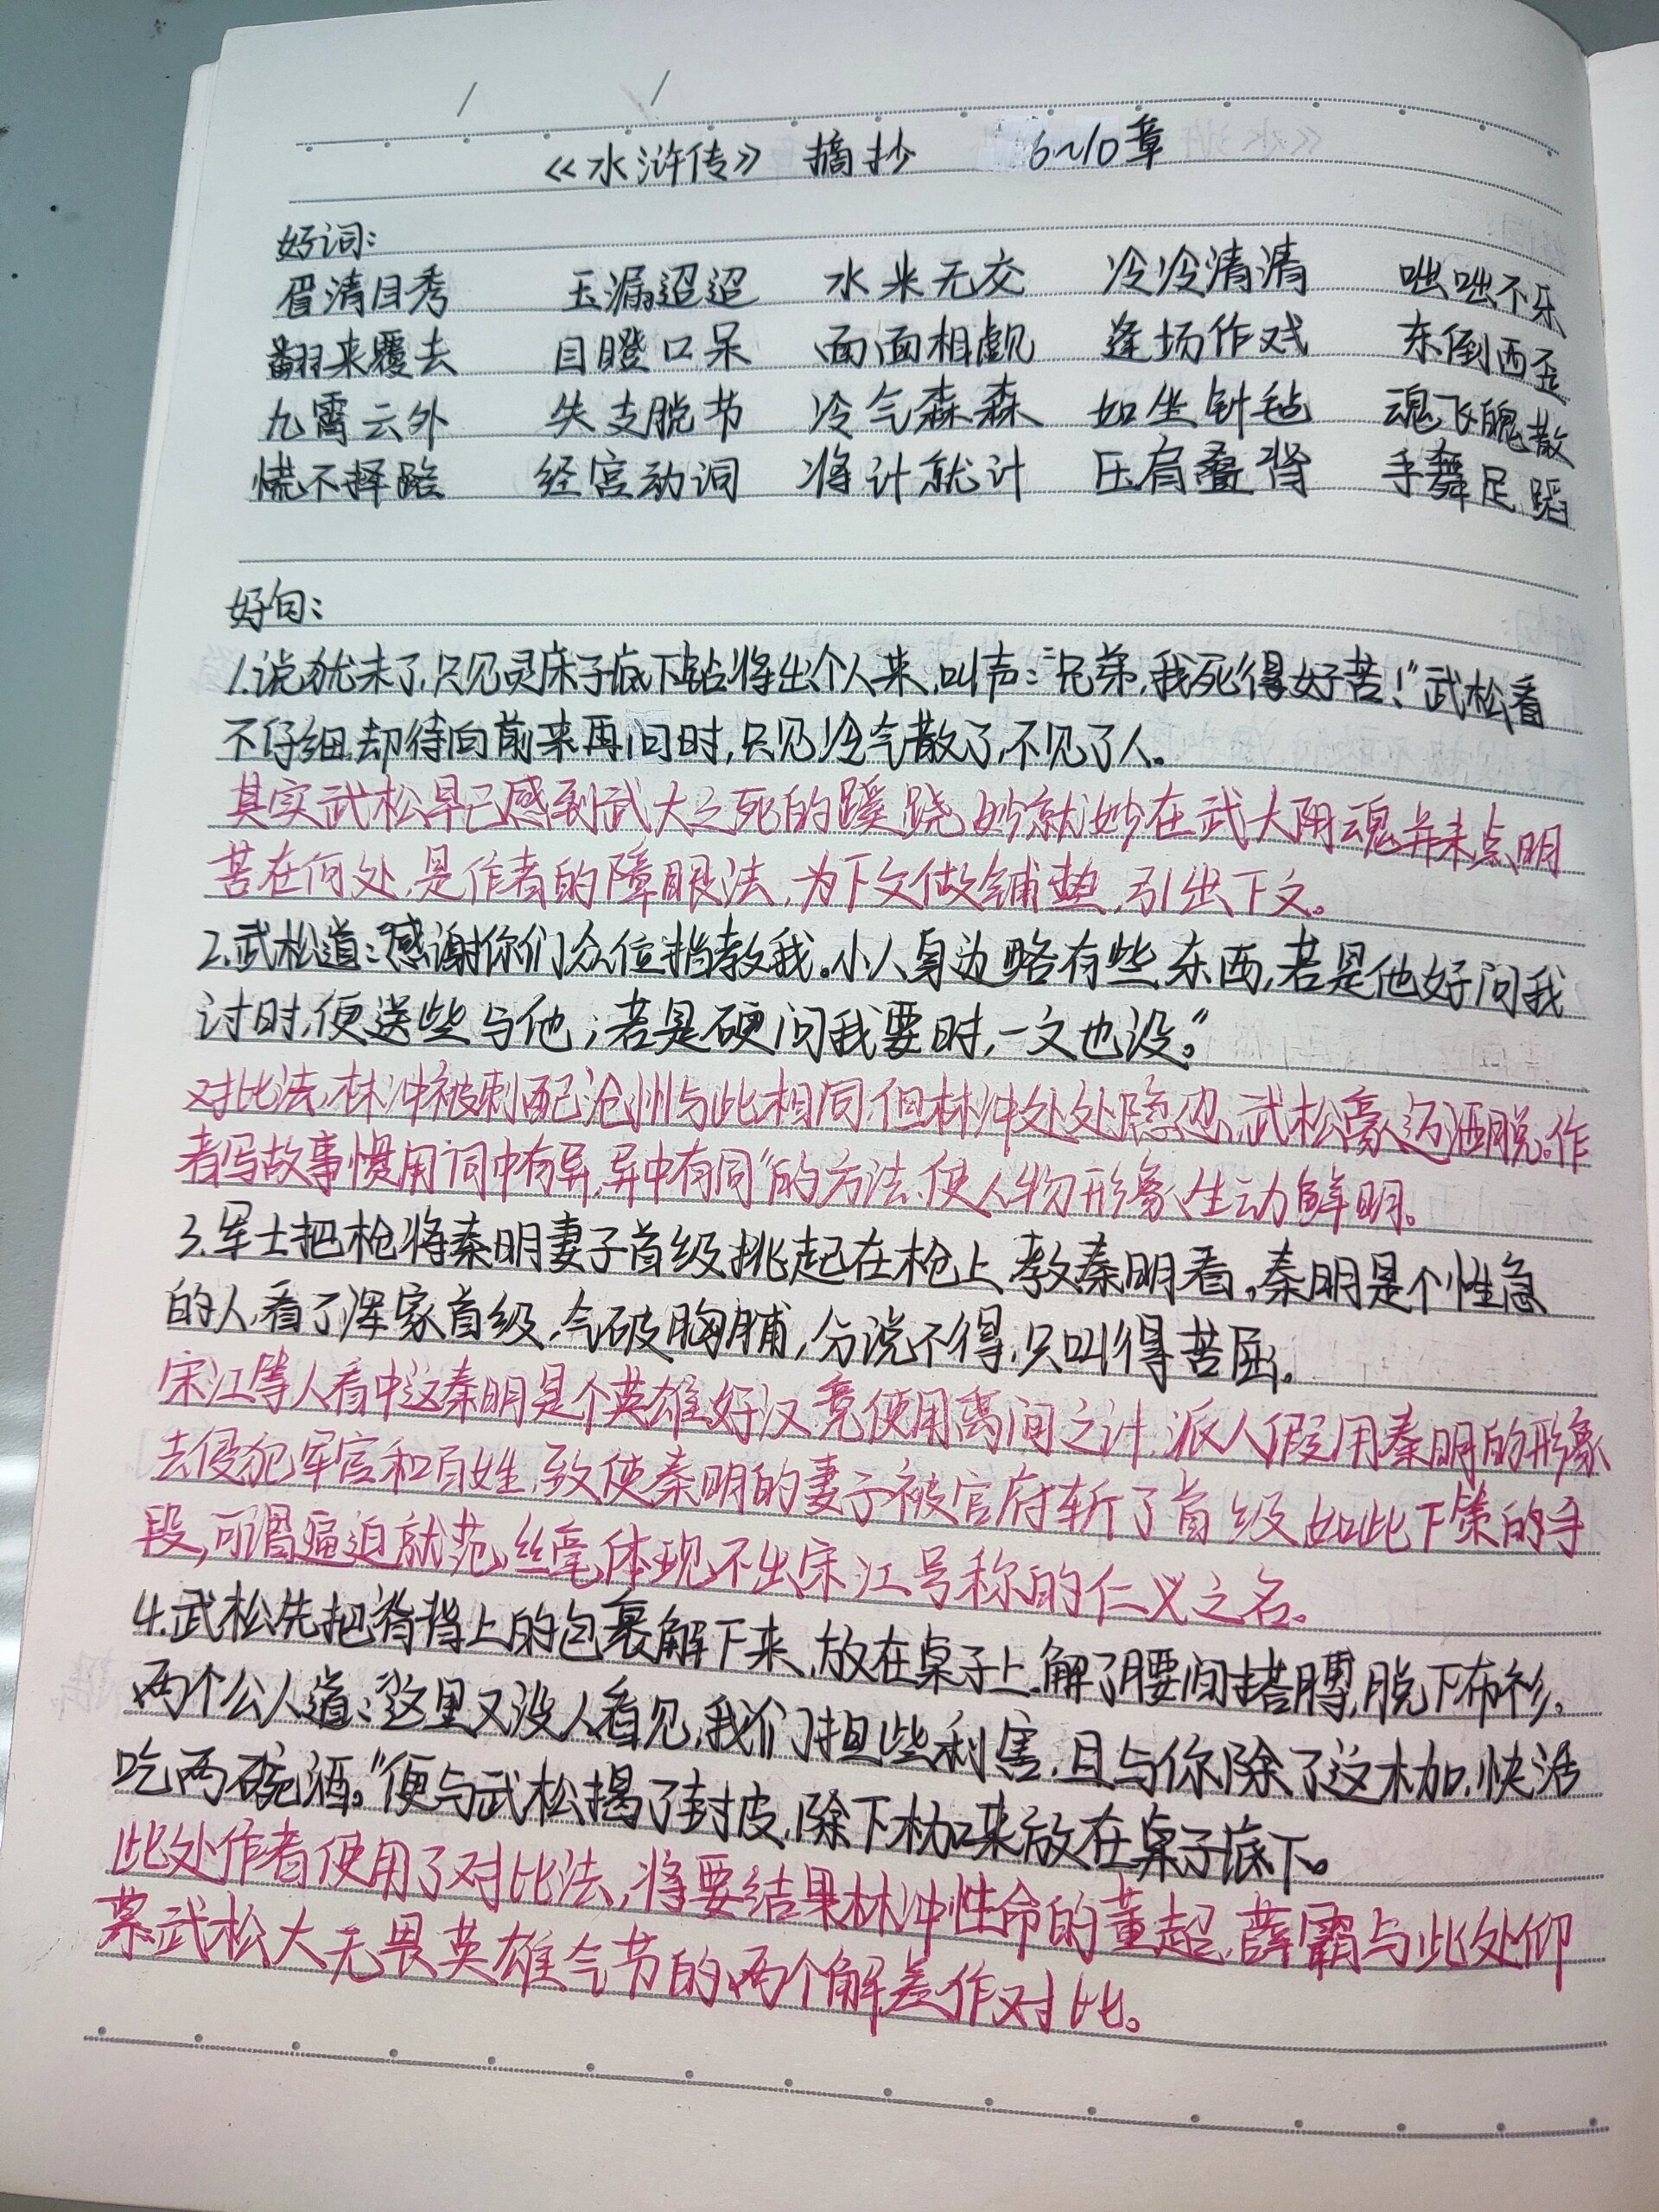 《水浒传》 摘抄 6~10章
好词:
眉清目秀 玉漏迢迢 水米无交 冷冷清清 咄咄不乐
翻来覆去 目瞪口呆 面面相觑 逢场作戏 东倒西歪
九霄云外 失支脱节 冷气森森 如坐针毡 魂飞魄散
慌不择路 经官动词 将计就计 压肩叠背 手舞足蹈
好句:
1.说犹未了,只见灵床子底下钻将出个人来,叫声:“兄弟,我死得好苦!”武松看
不仔细,却待向前来再问时,只见冷气散了,不见了人。
其实武松早已感到武大之死的蹊跷,妙就妙在武大阴魂并未点明
苦在何处,是作者的障眼法,为下文做铺垫,引出下文。
2.武松道:“感谢你们众位指教我。小人身边略有些东西,若是他好问我
讨时,便送些与他;若是硬问我要时,一文也没。”
对比法,林冲被刺配沧州与此相同,但林冲处处隐忍,武松豪迈洒脱。作
者写故事惯用“词中有异,异中有同”的方法,使人物形象生动鲜明。
3.军士把枪将秦明妻子首级挑起在枪上,教秦明看。秦明是个性急
的人,看了浑家首级,气破胸脯,分说不得,只叫得苦屈。
宋江等人看中这秦明是个英雄好汉,竟使用离间之计,派人假用秦明的形象
去侵犯军官和百姓,致使秦明的妻子被官府斩了首级,如此下策的手
段,可谓逼迫就范,丝毫体现不出宋江号称的仁义之名。
4.武松先把脊背上的包裹解下来,放在桌子上,解了腰间搭膊,脱下布衫。
两个公人道:“这里又没人看见,我们担些利害,且与你除了这枷,快活
吃两碗酒。”便与武松揭了封皮,除下枷来,放在桌子底下。
此处作者使用了对比法,将要结果林冲性命的董超,薛霸与此处仰
慕武松大无畏英雄气节的两个解差作对比。